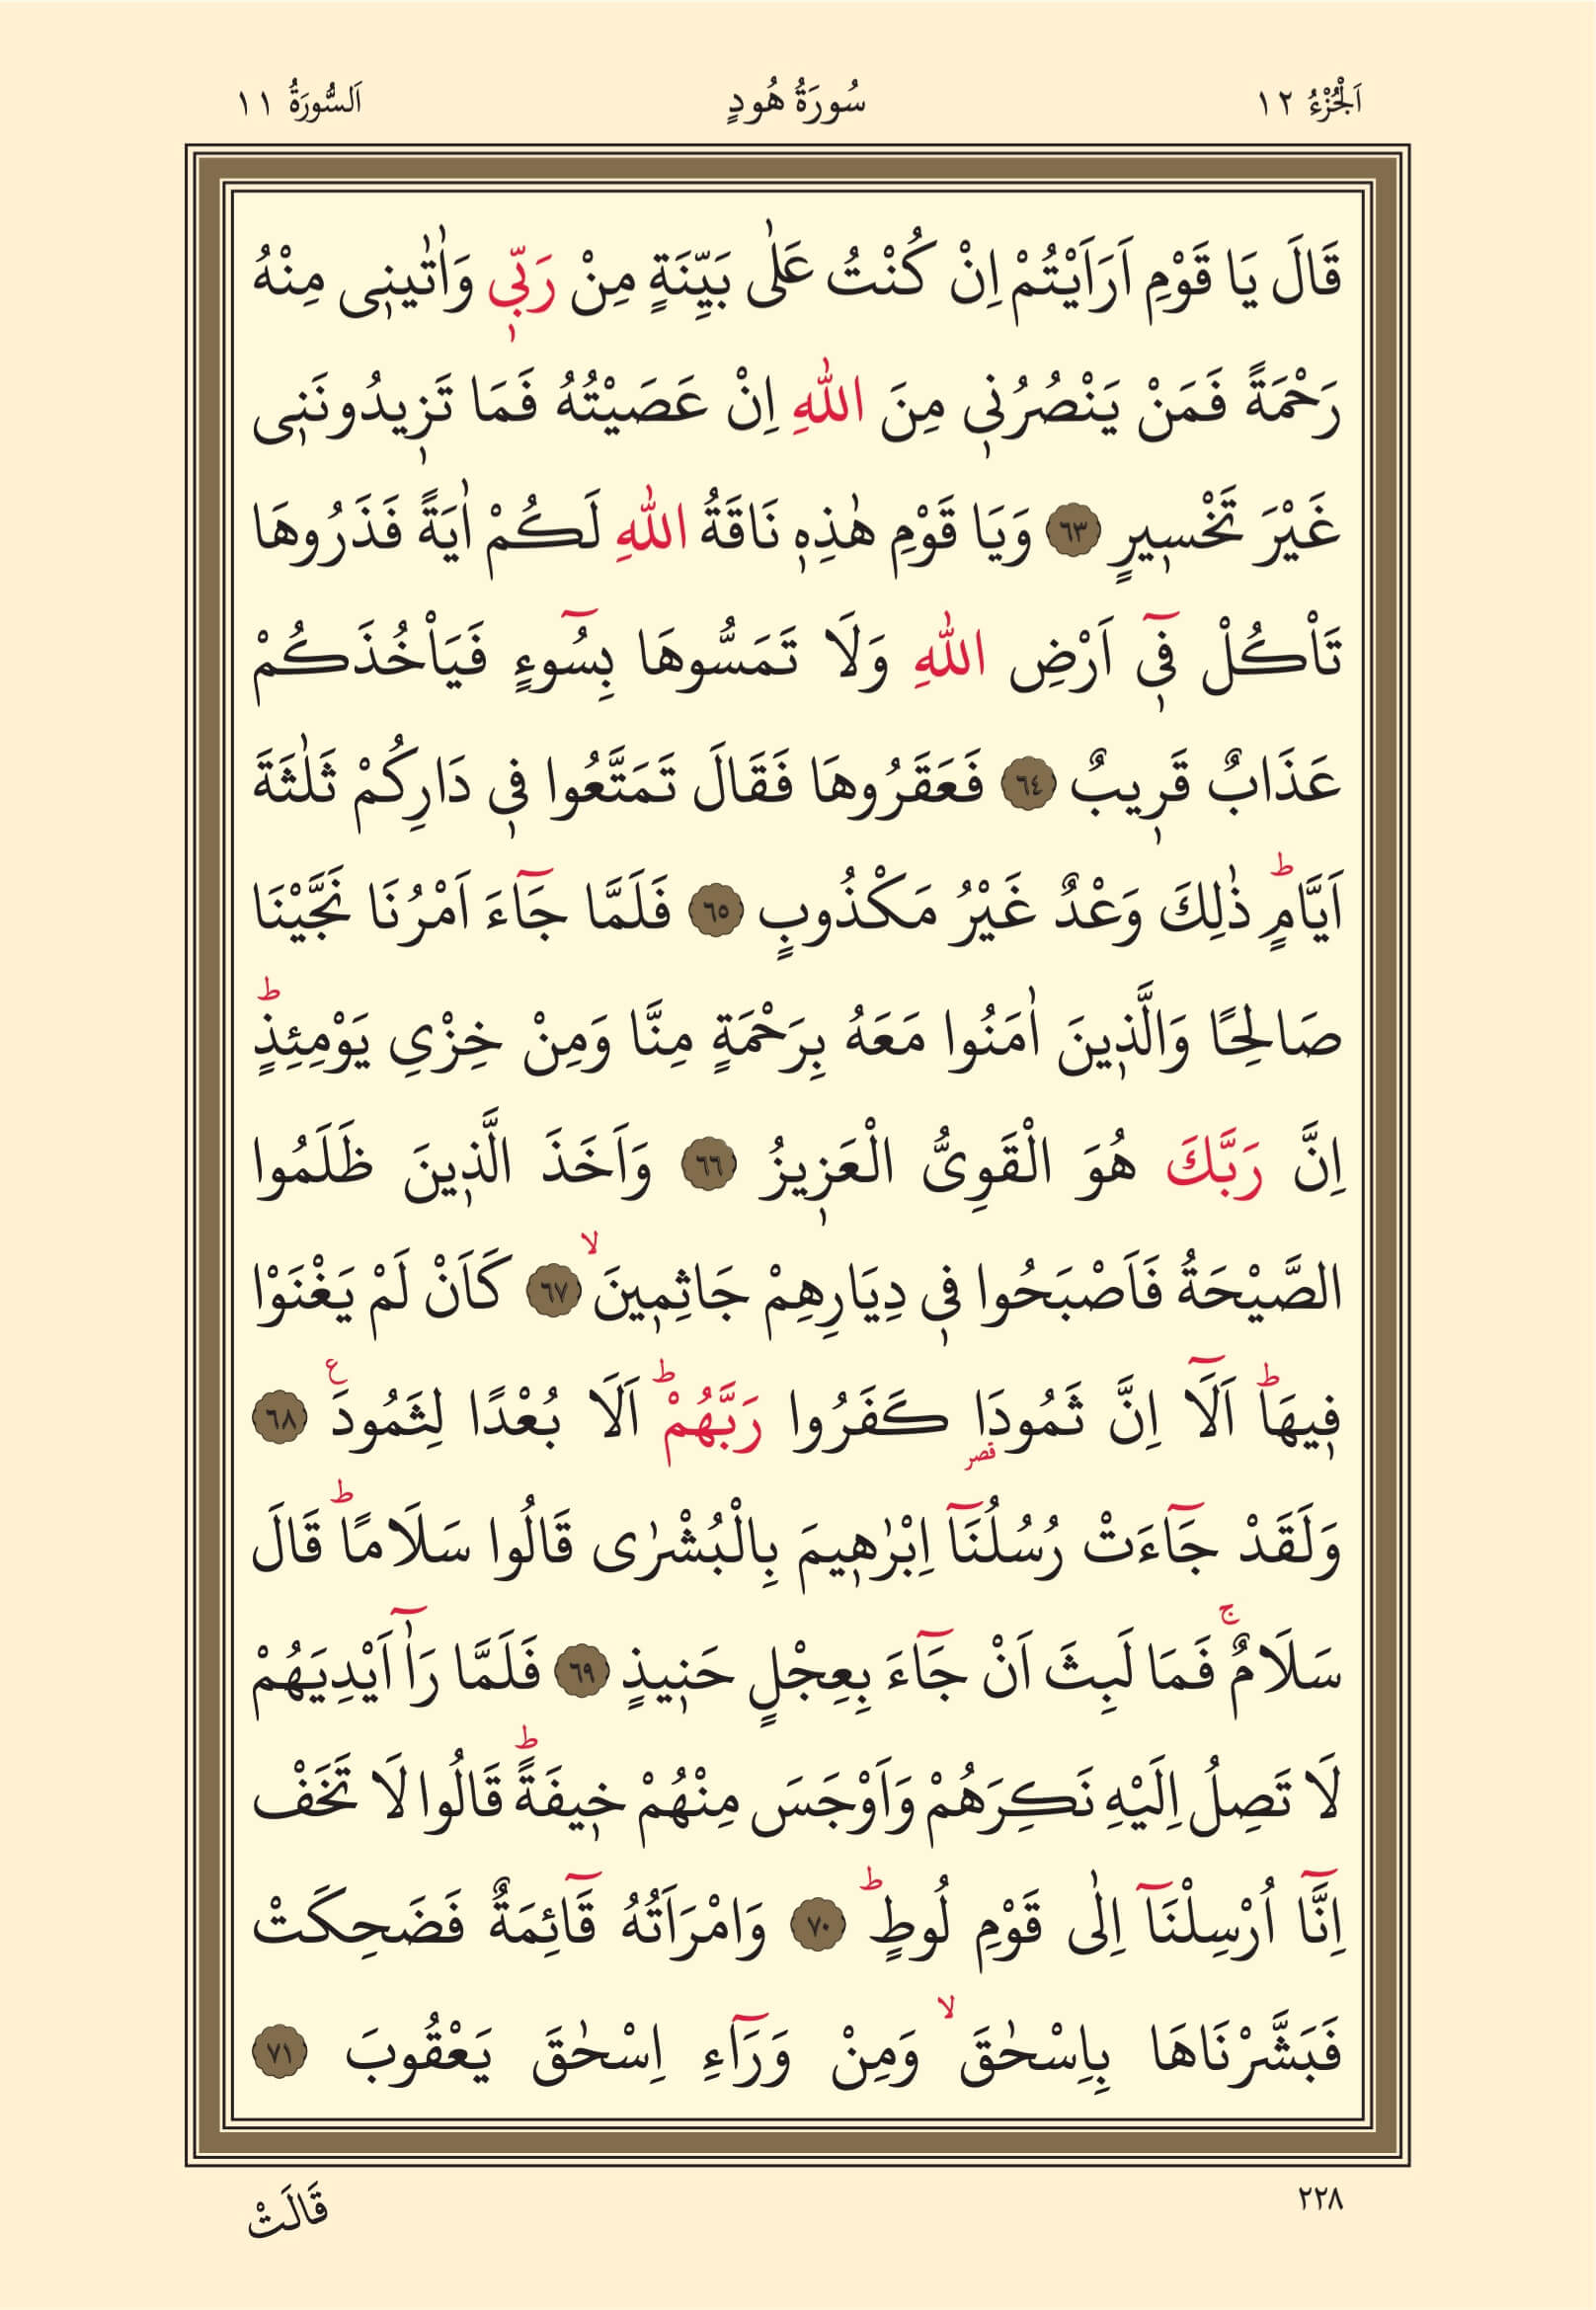 اَلْجُزْءُ ١٢ سُورَةُ هُودٍ اَلسُّورَةُ ١١
قَالَ يَا قَوْمِ اَرَاَيْتُمْ اِنْ كُنْتُ عَلٰى بَيِّنَةٍ مِنْ رَبّ۪ي وَاٰتٰين۪ي مِنْهُ
رَحْمَةً فَمَنْ يَنْصُرُن۪ي مِنَ اللّٰهِ اِنْ عَصَيْتُهُ فَمَا تَز۪يدُونَن۪ي
غَيْرَ تَخْس۪يرٍ ٦٣ وَيَا قَوْمِ هٰذِه۪ نَاقَةُ اللّٰهِ لَكُمْ اٰيَةً فَذَرُوهَا
تَأْكُلْ ف۪ٓي اَرْضِ اللّٰهِ وَلَا تَمَسُّوهَا بِسُٓوءٍ فَيَأْخُذَكُمْ
عَذَابٌ قَر۪يبٌ ٦٤ فَعَقَرُوهَا فَقَالَ تَمَتَّعُوا ف۪ي دَارِكُمْ ثَلٰثَةَ
اَيَّامٍۜ ذٰلِكَ وَعْدٌ غَيْرُ مَكْذُوبٍ ٦٥ فَلَمَّا جَٓاءَ اَمْرُنَا نَجَّيْنَا
صَالِحًا وَالَّذ۪ينَ اٰمَنُوا مَعَهُ بِرَحْمَةٍ مِنَّا وَمِنْ خِزْيِ يَوْمِئِذٍۜ
اِنَّ رَبَّكَ هُوَ الْقَوِيُّ الْعَز۪يزُ ٦٦ وَاَخَذَ الَّذ۪ينَ ظَلَمُوا
الصَّيْحَةُ فَاَصْبَحُوا ف۪ي دِيَارِهِمْ جَاثِم۪ينَۙ ٦٧ كَاَنْ لَمْ يَغْنَوْا
ف۪يهَاۜ اَلَٓا اِنَّ ثَمُودَا۬ كَفَرُوا رَبَّهُمْۜ اَلَا بُعْدًا لِثَمُودَ۟ ٦٨
وَلَقَدْ جَٓاءَتْ رُسُلُنَٓا اِبْرٰه۪يمَ بِالْبُشْرٰى قَالُوا سَلَامًاۜ قَالَ
سَلَامٌۚ فَمَا لَبِثَ اَنْ جَٓاءَ بِعِجْلٍ حَن۪يذٍ ٦٩ فَلَمَّا رَآٰ اَيْدِيَهُمْ
لَا تَصِلُ اِلَيْهِ نَكِرَهُمْ وَاَوْجَسَ مِنْهُمْ خ۪يفَةًۜ قَالُوا لَا تَخَفْ
اِنَّٓا اُرْسِلْنَٓا اِلٰى قَوْمِ لُوطٍۜ ٧٠ وَامْرَاَتُهُ قَٓائِمَةٌ فَضَحِكَتْ
فَبَشَّرْنَاهَا بِاِسْحٰقَۙ وَمِنْ وَرَٓاءِ اِسْحٰقَ يَعْقُوبَ ٧١
٢٢٨ قَالَتْ